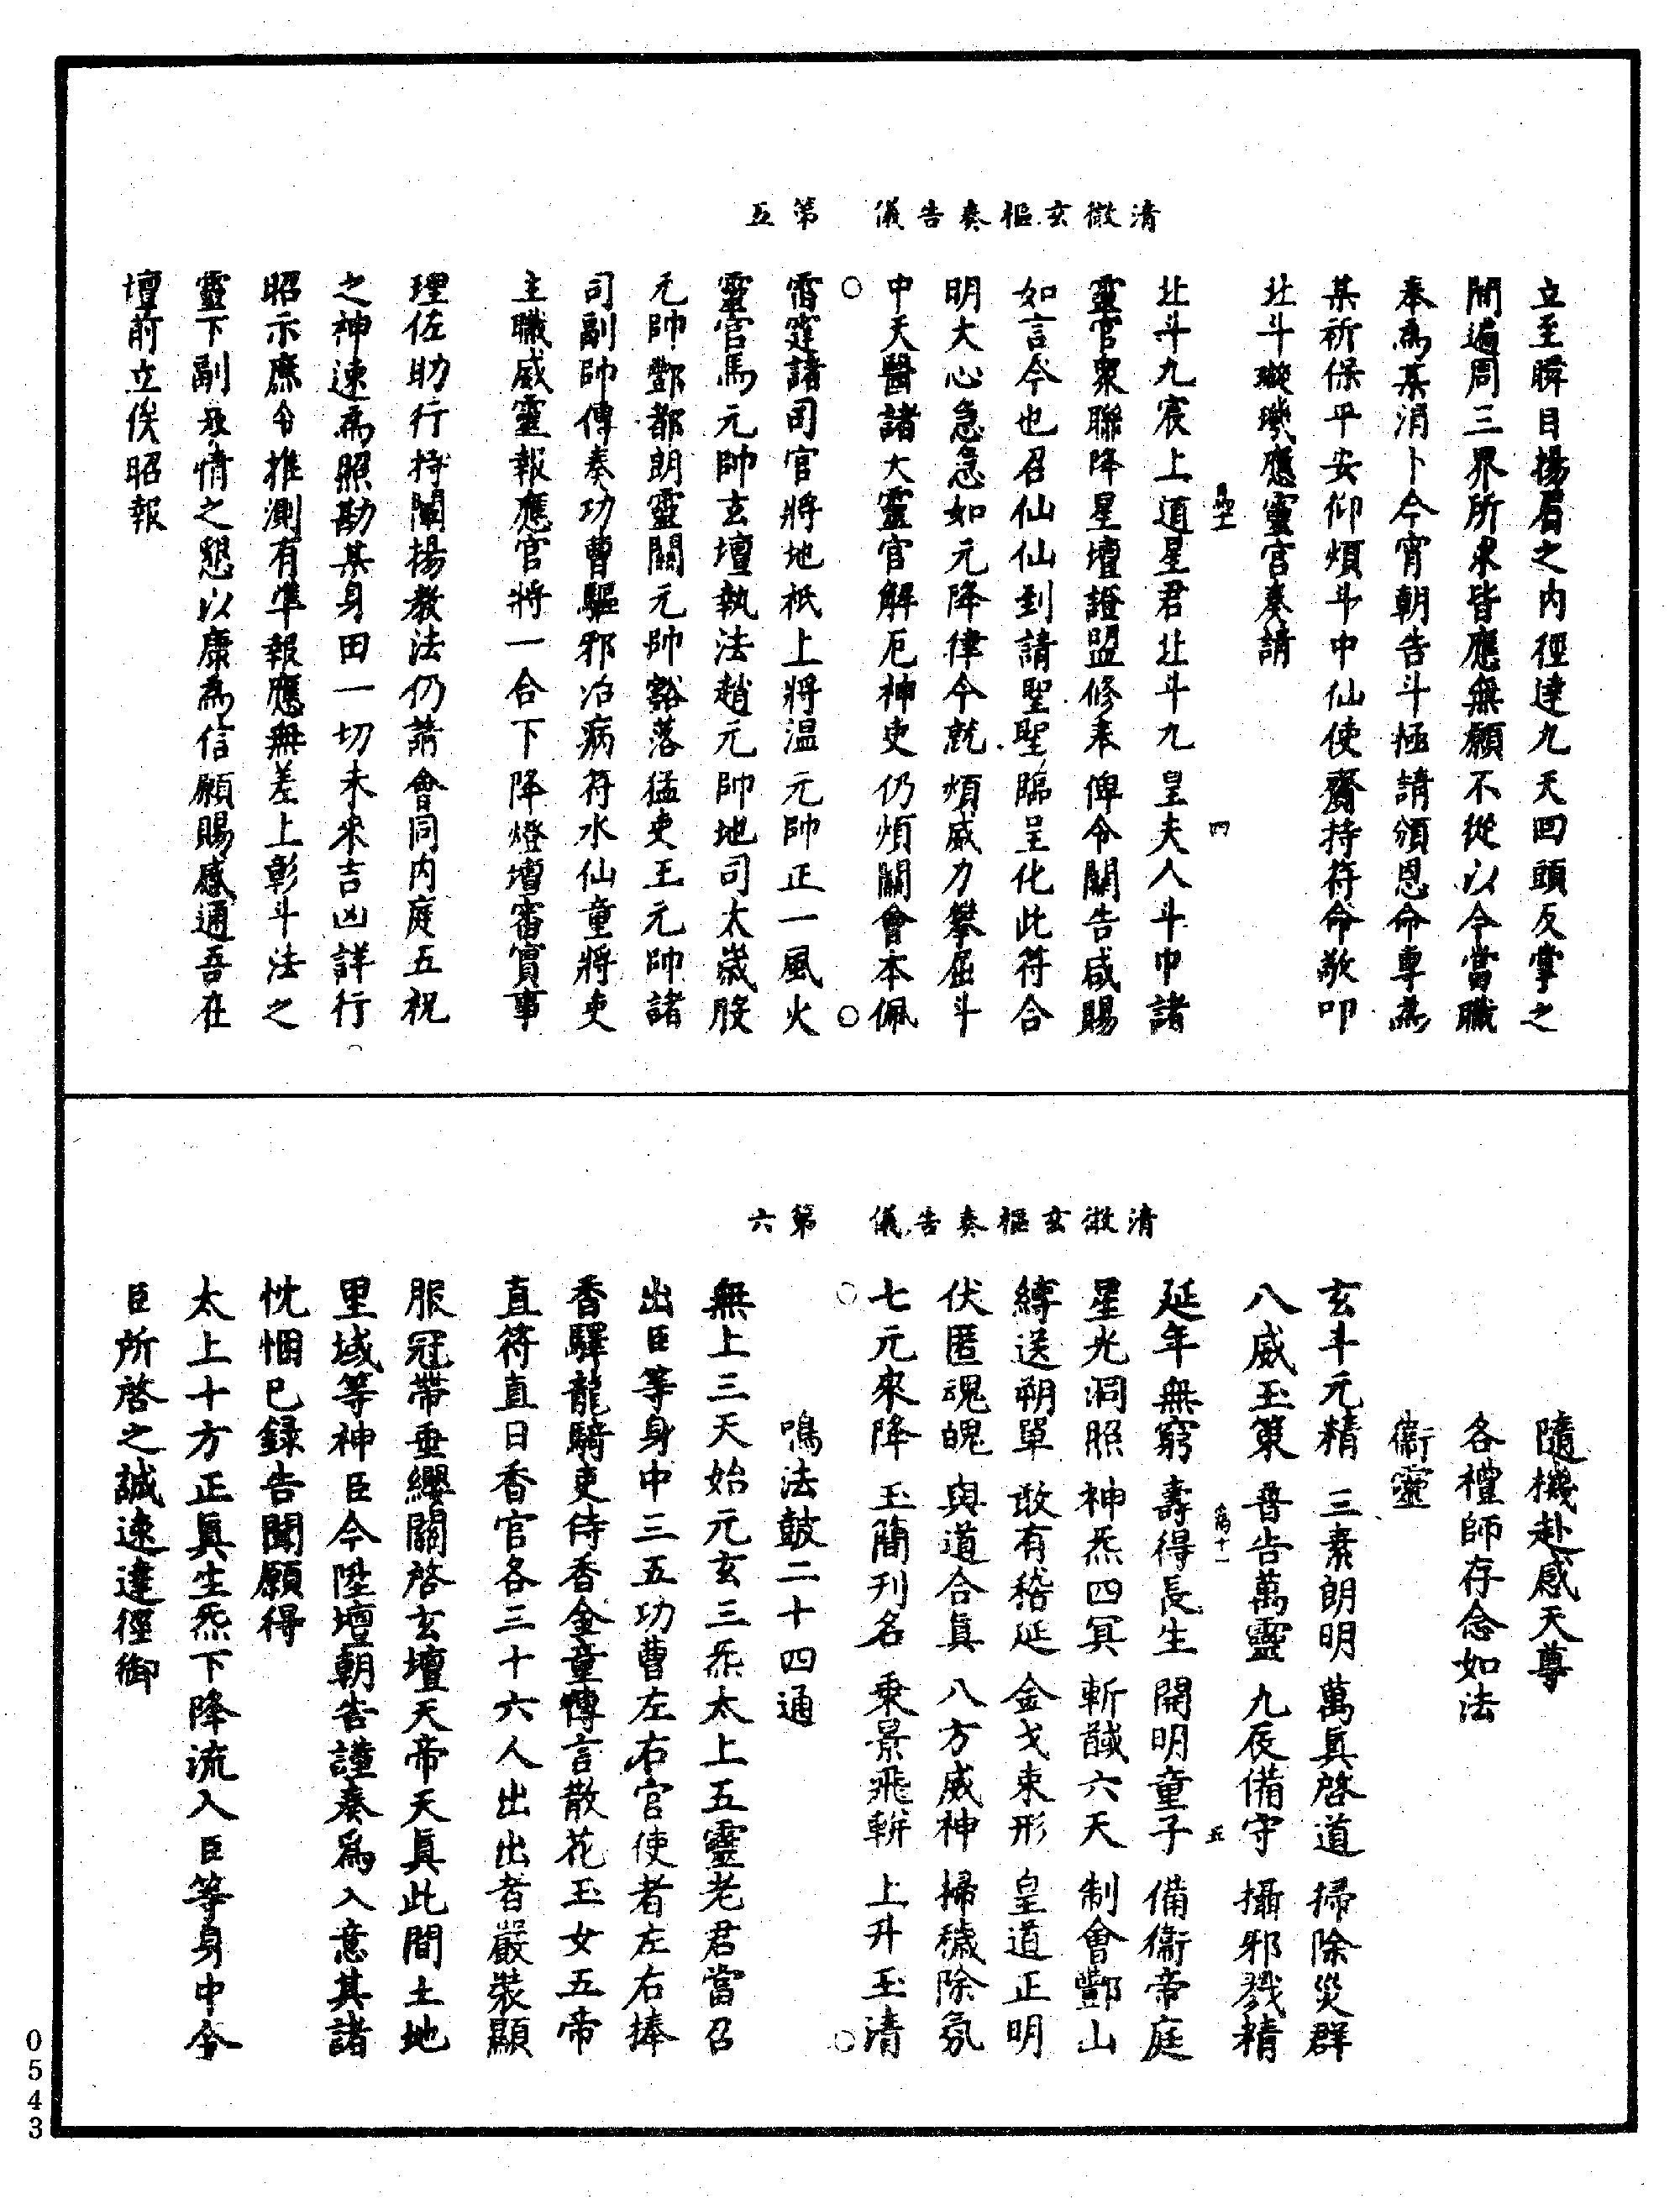 清微玄樞奏告儀　第五
立至瞬目揚眉之內徑達九天回頭反掌之
間遍周三界所求皆應無願不從以今當職
奉為某消卜今宵朝告斗極請頒恩命專為
某祈保平安仰煩斗中仙使齎持符命敬叩
北斗璇璣應靈官奏請
四
北斗九宸上道星君北斗九皇夫人斗中諸
靈官衆聯降星壇證盟修奉俾令關告咸賜
如言今也召仙仙到請聖聖臨呈化此符合
明大心急急如元降律令就煩威力攀屈斗
中天醫諸大靈官解厄神吏仍煩關會本佩
雷霆諸司官將地祇上將温元帥正一風火
靈官馬元帥玄壇執法趙元帥地司太歲殷
元帥酆都朗靈關元帥豁落猛吏王元帥諸
司副帥傳奏功曹驅邪治病符水仙童將吏
主職威靈報應官將一合下降燈壇審實事
理佐助行持闡揚教法仍請會同內庭五祝
之神速為照勘某身田一切未來吉凶詳行
昭示庶令推測有準報應無差上彰斗法之
靈下副情之懇以康為信願賜感通吾在
壇前立俟昭報
清微玄樞奏告儀　第六
隨機赴感天尊
各禮師存念如法
衞靈
玄斗元精　三素朗明　萬眞啓道　掃除災群
八威玉策　普告萬靈　九辰備守　攝邪戮精
五
延年無窮　壽得長生　開明童子　備衞帝庭
星光洞照　神炁四冥　斬馘六天　制會酆山
縛送朔單　敢有稽延　金戈束形　皇道正明
伏匿魂魄　與道合眞　八方威神　掃穢除氛
七元來降　玉簡刋名　乘景飛輧　上升玉清
鳴法鼓二十四通
無上三天始元玄三炁太上五靈老君當召
出臣等身中三五功曹左右官使者左右捧
香驛龍騎吏侍香金童傳言散花玉女五帝
直符直日香官各三十六人出出者嚴裝顯
服冠帶垂纓關啓玄壇天帝天眞此間土地
里域等神臣今陞壇朝告謹奏爲入意其諸
忱悃已録告聞願得
太上十方正眞生炁下降流入臣等身中令
臣所啓之誠速達徑御
0543